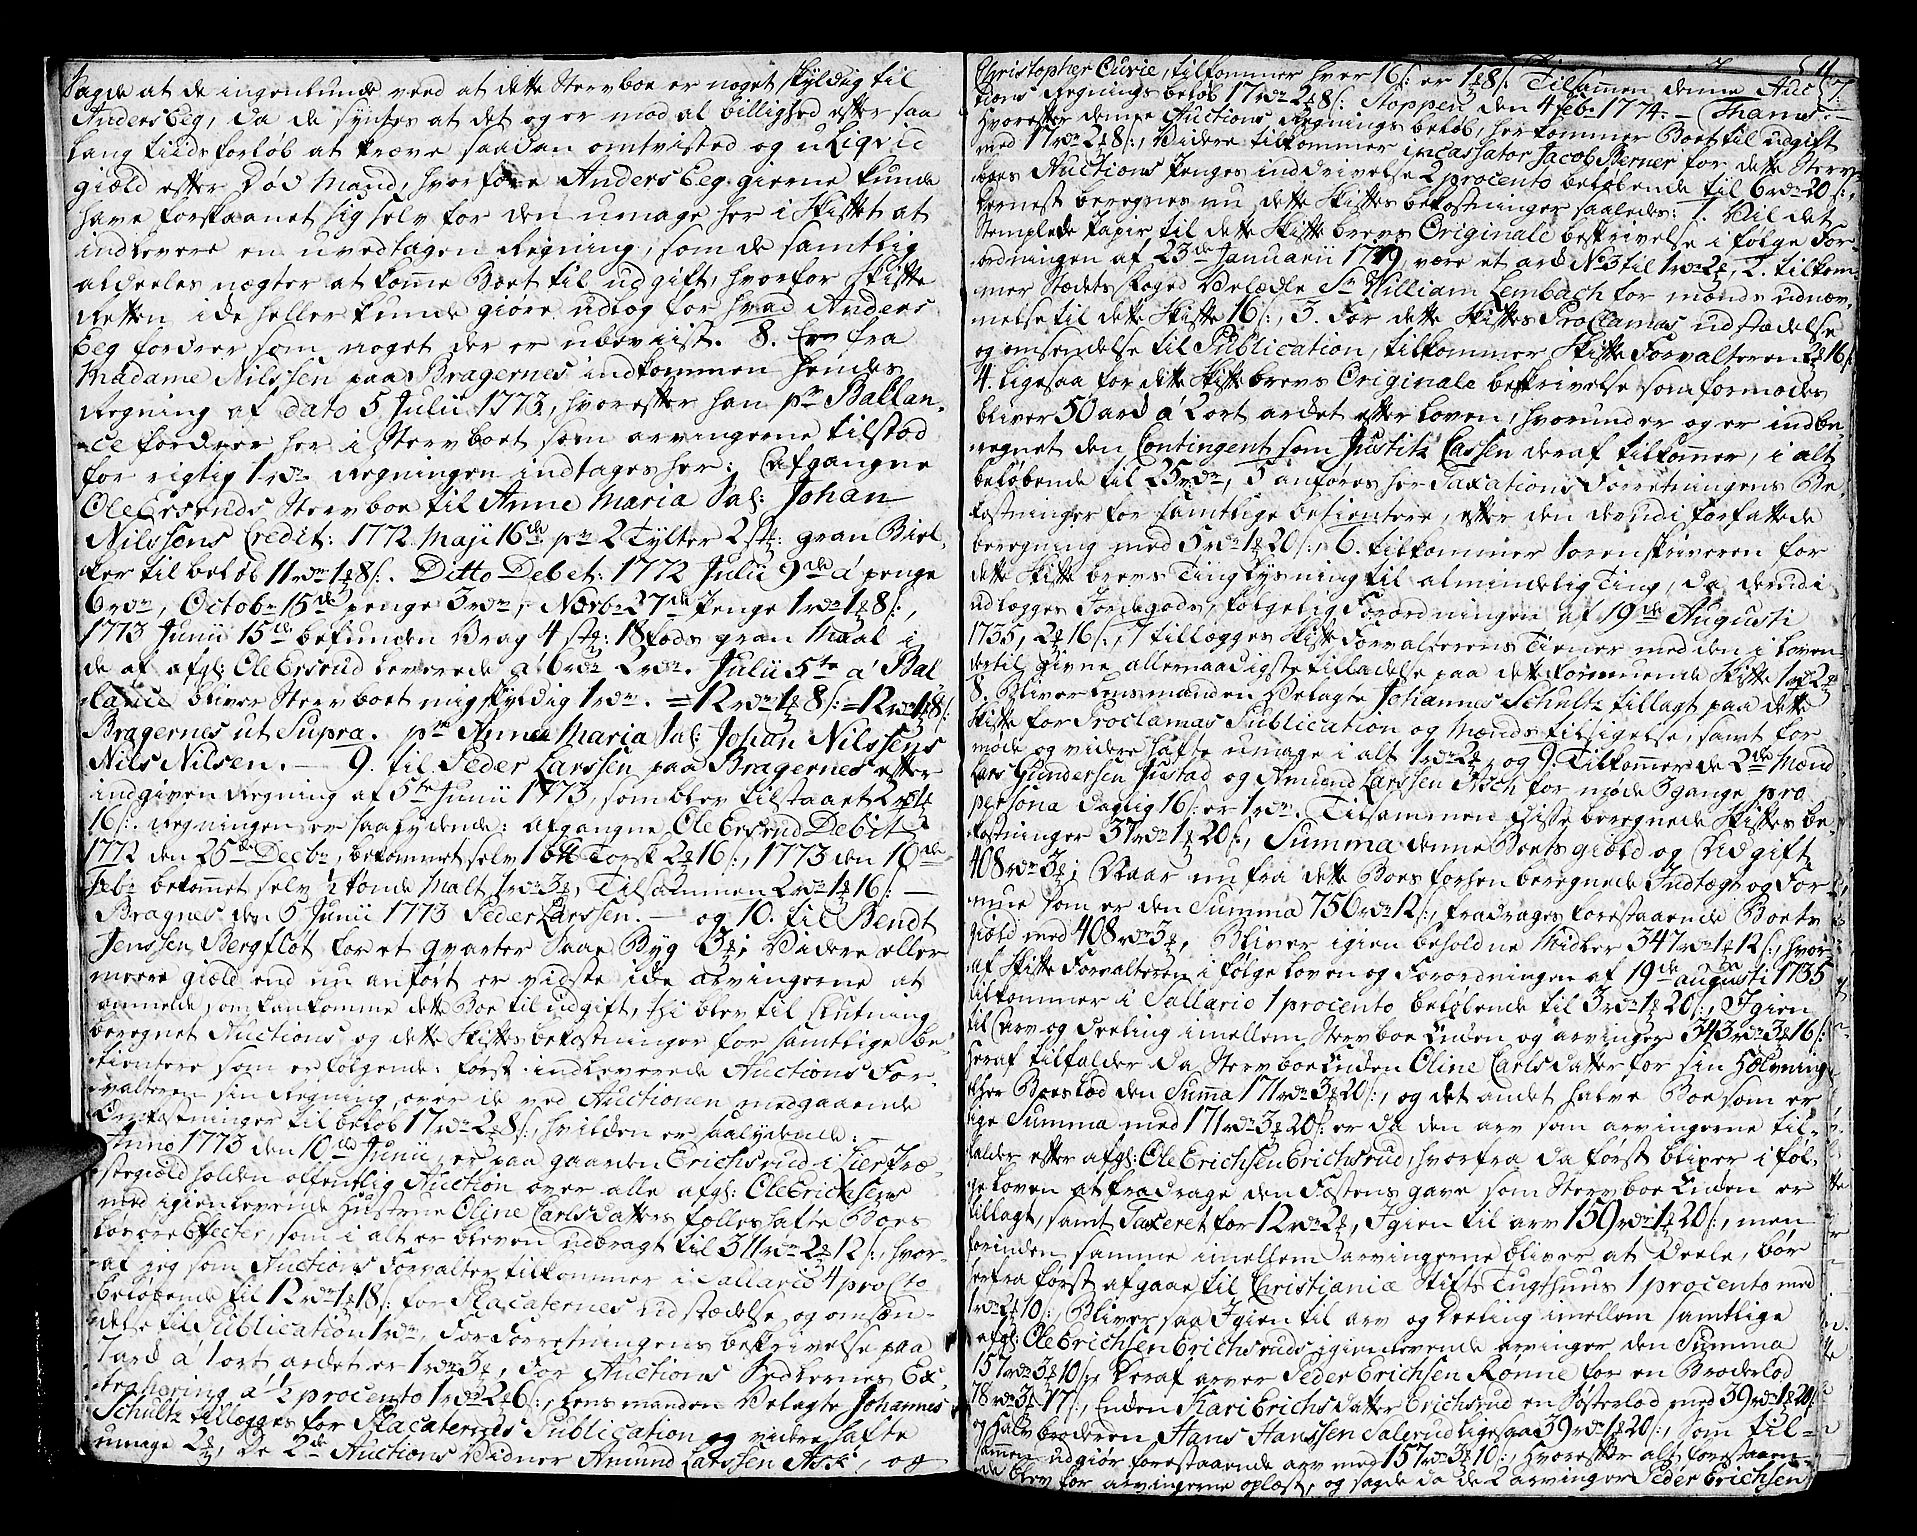 Sagde at de ingenlunde veed at dette Sterv boe er noget skyldig til
Anders Eeg, da de syntes at det og er mod al billighed efter saa
lang tiids forløb at kræve saadan omtvisted og uliqvid
giæld efter død Mand, hvorfore Anders Eeg gierne kunde
have forskaanet sig selv for den umage her i Skiftet at
indlevere en uvedtagen Regning, som de samtlig
aldeeles nægter at komme Boet til udgift, hvorfor Skifte
Retten ide heller kunde giøre udlog for hvad Anders
Eeg fordrer som noget der er ubeviist. 8. Er fra
Madame Nilssen paa Bragernes indkommen hendes
Regning af dato 5 Julii 1773, hvorefter han pr Ballan-
ce fordrer her i Stervboet som arvingerne tilstod
for rigtig 1 rdr. Regningen indtages her: Afgangne
Ole Ersruds Stervboe til Anne Maria Sal: Johan
Nilssens Credit: 1772 Maji 16de pr 2 Tylter 2 st: gran Biel-
ker til beløb 11 rdr 1 8 s:. Ditto Debet: 1772 Julii 9de á penge
6 rdr, Octobr 15de penge 3 rdr, Novbr 27de penge 1 rdr 1 8 s:,
1773 Junii 15de befunden Brag 4 st: 18 fods gran Maal i
de af afgl: Ole Ersrud leverede a 6 rdr 2 rdr. Julii 5te á Bal-
lance bliver Stervboet mig skyldig 1 rdr. = 12 rdr 1 8 s: = 12 rdr 1 8 s:
Bragernes ut Supra. pr Anna Maria Sal: Johan Nilssens
Nils Nilsen. — 9. til Peder Larssen paa Bragernes efter
indgiven Regning af 5te Junii 1773, som blev tilstaaet 2 rdr 1
16 s:. Regningen er saalydende: afgangne Ole Ersrud Debit
1772 den 25de Decbr, bekommet selv 1 Torsk 2 16 s:, 1773 den 10de
Febr bekommet selv ½ tønde Malt, 1 rdr 3, Tilsammen 2 rdr 1 16 s: —
Bragnes den 5 Junii 1773 Peder Larssen. — og 10. til Bendt
Jenssen Bergflot for et qvarter Saae Byg 3; Videre eller
meere giæld end nu anført er vidste ide arvingerne at
anmelde, som kan komme dette Boe til udgift, thi blev til slutning
beregnet Auctions og dette Skiftes bekostninger for samtlige be-
tientere som er følgende: først indleverede Auctions For-
valteren sin Regning over de ved Auctionen medgaaende
Omkostninger til beløb 17 rdr 2 8 s:, hvilken er saalydende: —
Anno 1773 den 10de Junii, er paa gaarden Erichsrud i Lier Præ-
stegield holden offentlig Auction over alle afgl: Ole Erichsens
med igienlevende Hustrue Oline Carlsdatters fælles hafte Boes
Løsøre Efecter, som i alt er bleven udbragt til 311 rdr 2 12 s:, hvor-
af jeg som Auctions Forvalter tilkommer i Sallario 4 procto
beløbende til 12 rdr 1 18 s: for Placaternes udstædelse og omsen-
delse til Publication 1 rdr, For Forretningens beskrivelse paa
7 ard á 1 ort ardet er 1 rdr 3, For Auctions Sedlernes Ex-
trahering á ½ procento 1 rdr 2 6 s:, Lensmanden Velagte Johannes
Schultz tillegges for Placaternes Publication og videre hafte
umage 2, De 2de Auctions Vidner Amund Larssen Ask, og
Christopher Curie, tilkommer hver 16 s: er 1 8 s: Tilsammen denne Auc-
tions Regnings beløb 17 rdr 2 8 s: Stoppen den 4 Febr 1774. — Thams. —
Hvorefter denne Auctions Regnings beløb, her kommer Boet til udgift
med 17 rdr 2 8 s:, Videre tilkommer incassator Jacob Berner for dette Sterv-
boes Auctions Penges inddrivelse 2 procento beløbende til 6 rdr 20 s:,
dernest beregnes nu dette Skiftes bekostninger saaledes: 1. Til det
Stemplede Papir til dette Skifte brevs Originale beskrivelse i følge For-
ordningen af 23de Januarii 1719, være et ard No 3 til 1 rdr 2, 2. tilkom-
mer Stædets Foged Velædle Sr William Lembach for mænds udnæv-
nelse til dette Skifte 16 s:, 3. For dette Skiftes Proclamas udstædelse
og omsendelse til Publication, tilkommer Skifte Forvalteren 2 16 s:
4. Ligesaa for dette Skifte brevs Originale beskrivelse som formodes
bliver 50 ard á 2 ort ardet efter loven, hvorunder og er indbe-
regnet den Contingent som Justitz Cassen deraf tilkommer, i alt
beløbende til 25 rdr, 5 anføres her Taxations Forretningens Be-
kostninger for samtlige betientere, efter den derudi forfattede
beregning med 5 rdr 1 20 s:, 6. tilkommer Sorenskriveren for
dette Skifte brevs Tinglysning til almindelig Ting, da derudi
udlægges Jordegods, følgelig Forordningen af 19de Augusti
1735, 2 16 s:, 7 tillegges Skifte Forvalterens Tiener med den i Loven
dertil givne allernaadigste tilladelse paa dette formuende Skifte 1 rdr 2
8. Bliver Lensmanden Velagte Johannes Schultz tillagt paa dette
Skifte for Proclamas Publication og Mænds tilsigelse, samt for
møde og videre hafte umage i alt 1 rdr 2, og 9. Tilkommer de 2de Mænd
Lars Gundersen Justad og Amund Larssen Asch for møde 3 gange pro
persona daglig 16 s: er 1 rdr. Tilsammen disse beregnede Skiftes be-
kostninger 37 rdr 1 20 s:, Summa denne Boets giæld og Udgift
408 rdr 3; Naar nu fra dette Boes forhen beregnede Indtægt og For-
mue som er den Summa 756 rdr 12 s:, fradrages forestaaende Boets
giæld med 408 rdr 3, Bliver igien beholdne Midler 347 rdr 1 12 s:, hvor
af Skifte Forvalteren i følge Loven og Forordningen af 19de augusti 1735
tilkommer i Sallario 1 procento beløbende til 3 rdr 1 20 s:, Igien
til arv og deeling imellem Stervboe Enken og arvinger 343 rdr 3 16 s:
Heraf tilfalder da Stervboe Enken Oline Carlsdatter for sin Halvning
eller Boeslod den Summa 171 rdr 3 20 s:, og det andet halve Boe som er
lige Summa med 171 rdr 3 20 s: er da den arv som arvingerne til-
falder efter afgl: Ole Erichsen Erichsrud, hvorfra da først bliver i føl-
ge Loven at fradrage den Festens gave som Stervboe Enken er
tillagt, samt Taxeret for 12 rdr 2, Igien til arv 159 rdr 1 20 s:, men
forinden samme imellem arvingerne bliver at deele, bør
herfra først afgaae til Christianiæ Stifts Tugthuus 1 procento med
1 rdr 2 10: Bliver saa Igien til arv og Deeling imellem samtlige
afgl: Ole Erichsen Erichsruds igienlevende arvinger den Summa
157 rdr 3 10 s: Deraf arver Peder Erichsen Rønne for en Broderlod
78 rdr 3 17 s:, Enken Kari Erichsdatter Erichsrud en Søsterlod med 39 rdr 1 20 s:
og Halvbroderen Hans Hanssen Salerud ligesaa 39 rdr 1 20 s:, Som til-
sammen udgiør forestaaende arv med 157 rdr 3 10 s:, Hvorefter alt forestaaen-
de blev for arvingerne oplæst, og sagde da de 2 arvinger Peder Erichsen